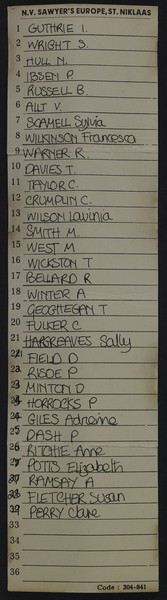 N.Y. SAWYER'S EUROPE, ST. NIKLAAS
1 GUTHRIE I.
2 WRIGHT S.
3 HULL N.
4 IBSEN P.
5 RUSSELL B.
6 AILT V.
7 SCAMELL Sylvia
8 WILKINSON Francesca
9 WARNER R.
10 DAVIES T.
11 TAYLOR C.
12 CRUMPLIN C.
13 WILSON Lavinia
14 SMITH M.
15 WEST M
16 WICKSTON T
17 BELLARD R
18 WINTER A
19 GEOGHEGAN T
20 FULKER C
21 HARGREAVES Sally
FIELD D
RISOE P
MINTON D
HORROCKS P
GILES Adrienne
25 DASH P
RITCHIE Anne
POTTS Elizabeth
RAMSAY A
FLETCHER Susan
PERRY Clare
33
34
35
36
Code : 204-841